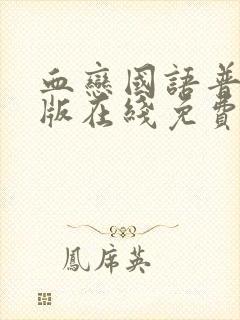 血戀國語普
版在綫免費
鳳席英